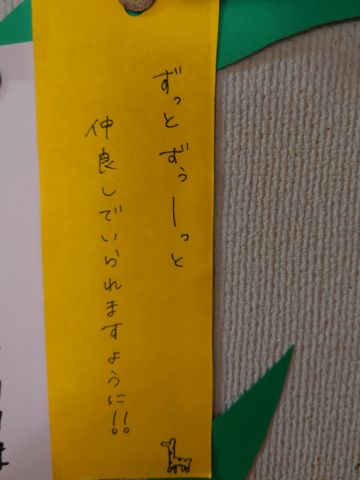 ずっとずぅーっと
仲良しでいられますように!!